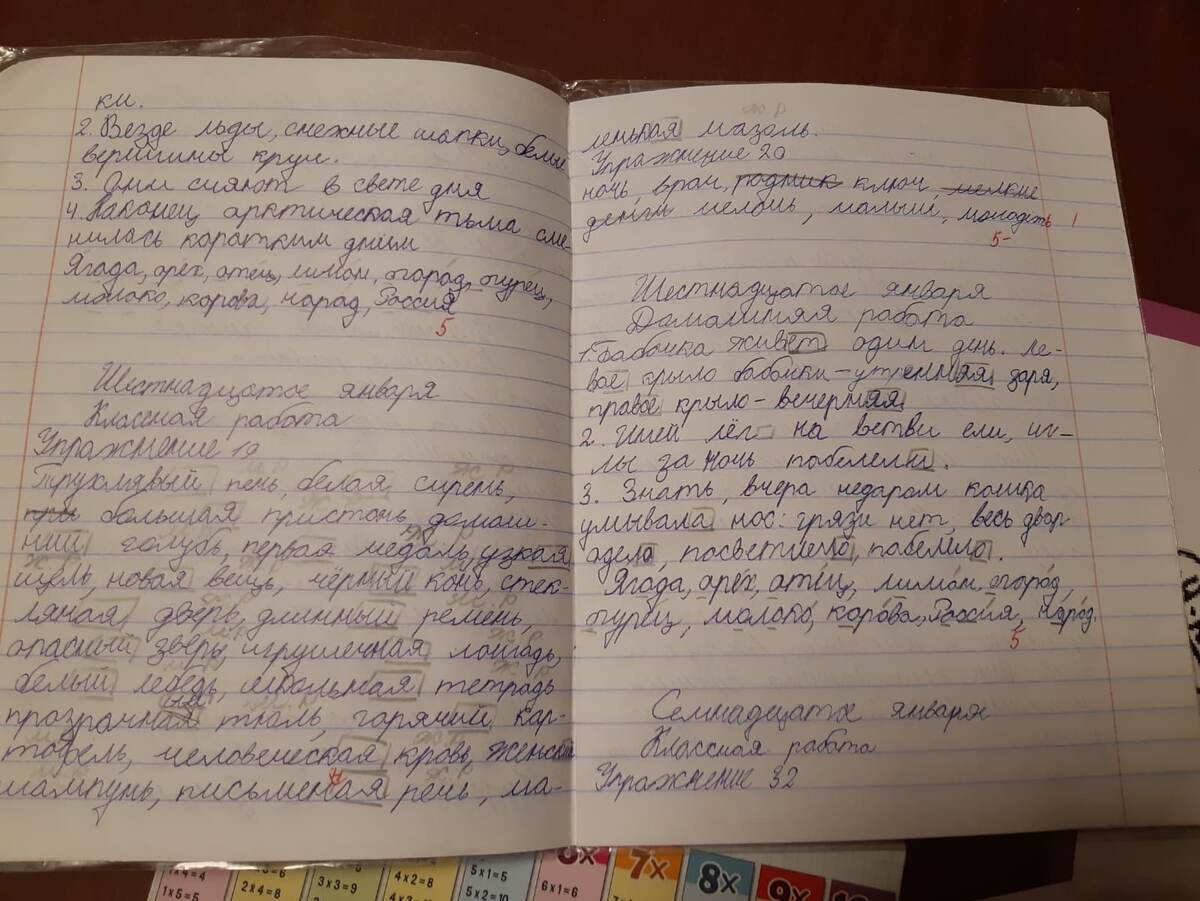 ки.
2. Везде льды, снежные шапки, белые
вершины круч.
3. Они сияют в свете дня
4. Наконец арктическая тьма сме-
нилась коратким днём
Ягода, орех, отец, лимон, город, огурец,
молоко, корова, народ, Россия
5
Шестнадцатое января
Классная работа
Упражнение 19
Трухлявый пень, белая сирень,
при большая пристань, домаш-
ний голубь, первая медаль, узкая
щель, новая вещь, чёрный конь, стек-
ляная дверь, длинный ремень,
опасный зверь, игрушечная лошадь,
белый лебедь, школьная тетрадь
прозрачная тюль, горячий кар-
тофель, человеческая кровь, женский
шампунь, письменая речь, ма-
н
ленькая мазоль.
Упражнение 20
ночь, врач, родник ключ, мелкие
деньги мелочь, малыш,
5-
Шестнадцатое января
Домашняя работа
1. Бабочка живет один день. Ле-
вое крыло бабочки - утренняя заря,
правое крыло - вечерняя
2. Иней лёг на ветви ели, иг-
лы за ночь побелели.
3. Знать, вчера недаром кошка
умывала нос: грязи нет, весь двор
одела, посветлело, побелило.
Ягода, орех, отец, лимон, огород,
огурец, молоко, корова, Россия, народ.
5
Семнадцатое января
Классная работа
Упражнение 32
1x4=4
1x5=5
2x4=8
3x3=9
4x2=8
5x1=5
5x2=10
6x
6x1=6
7x
8x
9x